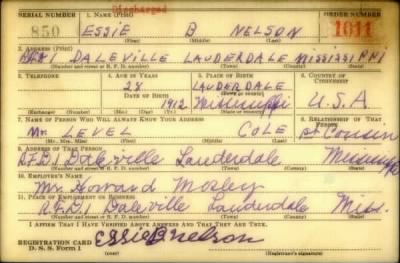 Discharged
SERIAL NUMBER 1. NAME (Print) ORDER NUMBER
850 ESSIE B NELSON 1011
(First) (Middle) (Last)
2. ADDRESS (Print)
DALEVILLE LAUDERDALE MISSISSIPPI
(Number and street or R. F. D. number) (Town) (County) (State)
3. TELEPHONE 4. AGE IN YEARS 5. PLACE OF BIRTH 6. COUNTRY OF CITIZENSHIP
28 LAUDERDALE
DATE OF BIRTH (Town or county)
1912 Mississippi U.S.A
(Exchange) (Number) (Mo.) (Day) (Yr.) (State or country)
7. NAME OF PERSON WHO WILL ALWAYS KNOW YOUR ADDRESS 8. RELATIONSHIP OF THAT PERSON
Mr LEVEL COLE Cousin
(Mr., Mrs., Miss) (First) (Middle) (Last)
9. ADDRESS OF THAT PERSON
R.F.D.1 Daleville Lauderdale
(Number and street or R. F. D. number) (Town) (County) (State)
10. EMPLOYER'S NAME
Mr. Howard Mosley
11. PLACE OF EMPLOYMENT OR BUSINESS
R.F.D.1 Daleville Lauderdale Miss.
(Number and street or R. F. D. number) (Town) (County) (State)
I AFFIRM THAT I HAVE VERIFIED ABOVE ANSWERS AND THAT THEY ARE TRUE.
REGISTRATION CARD Essie B Nelson
D. S. S. Form 1 (Registrant's signature)